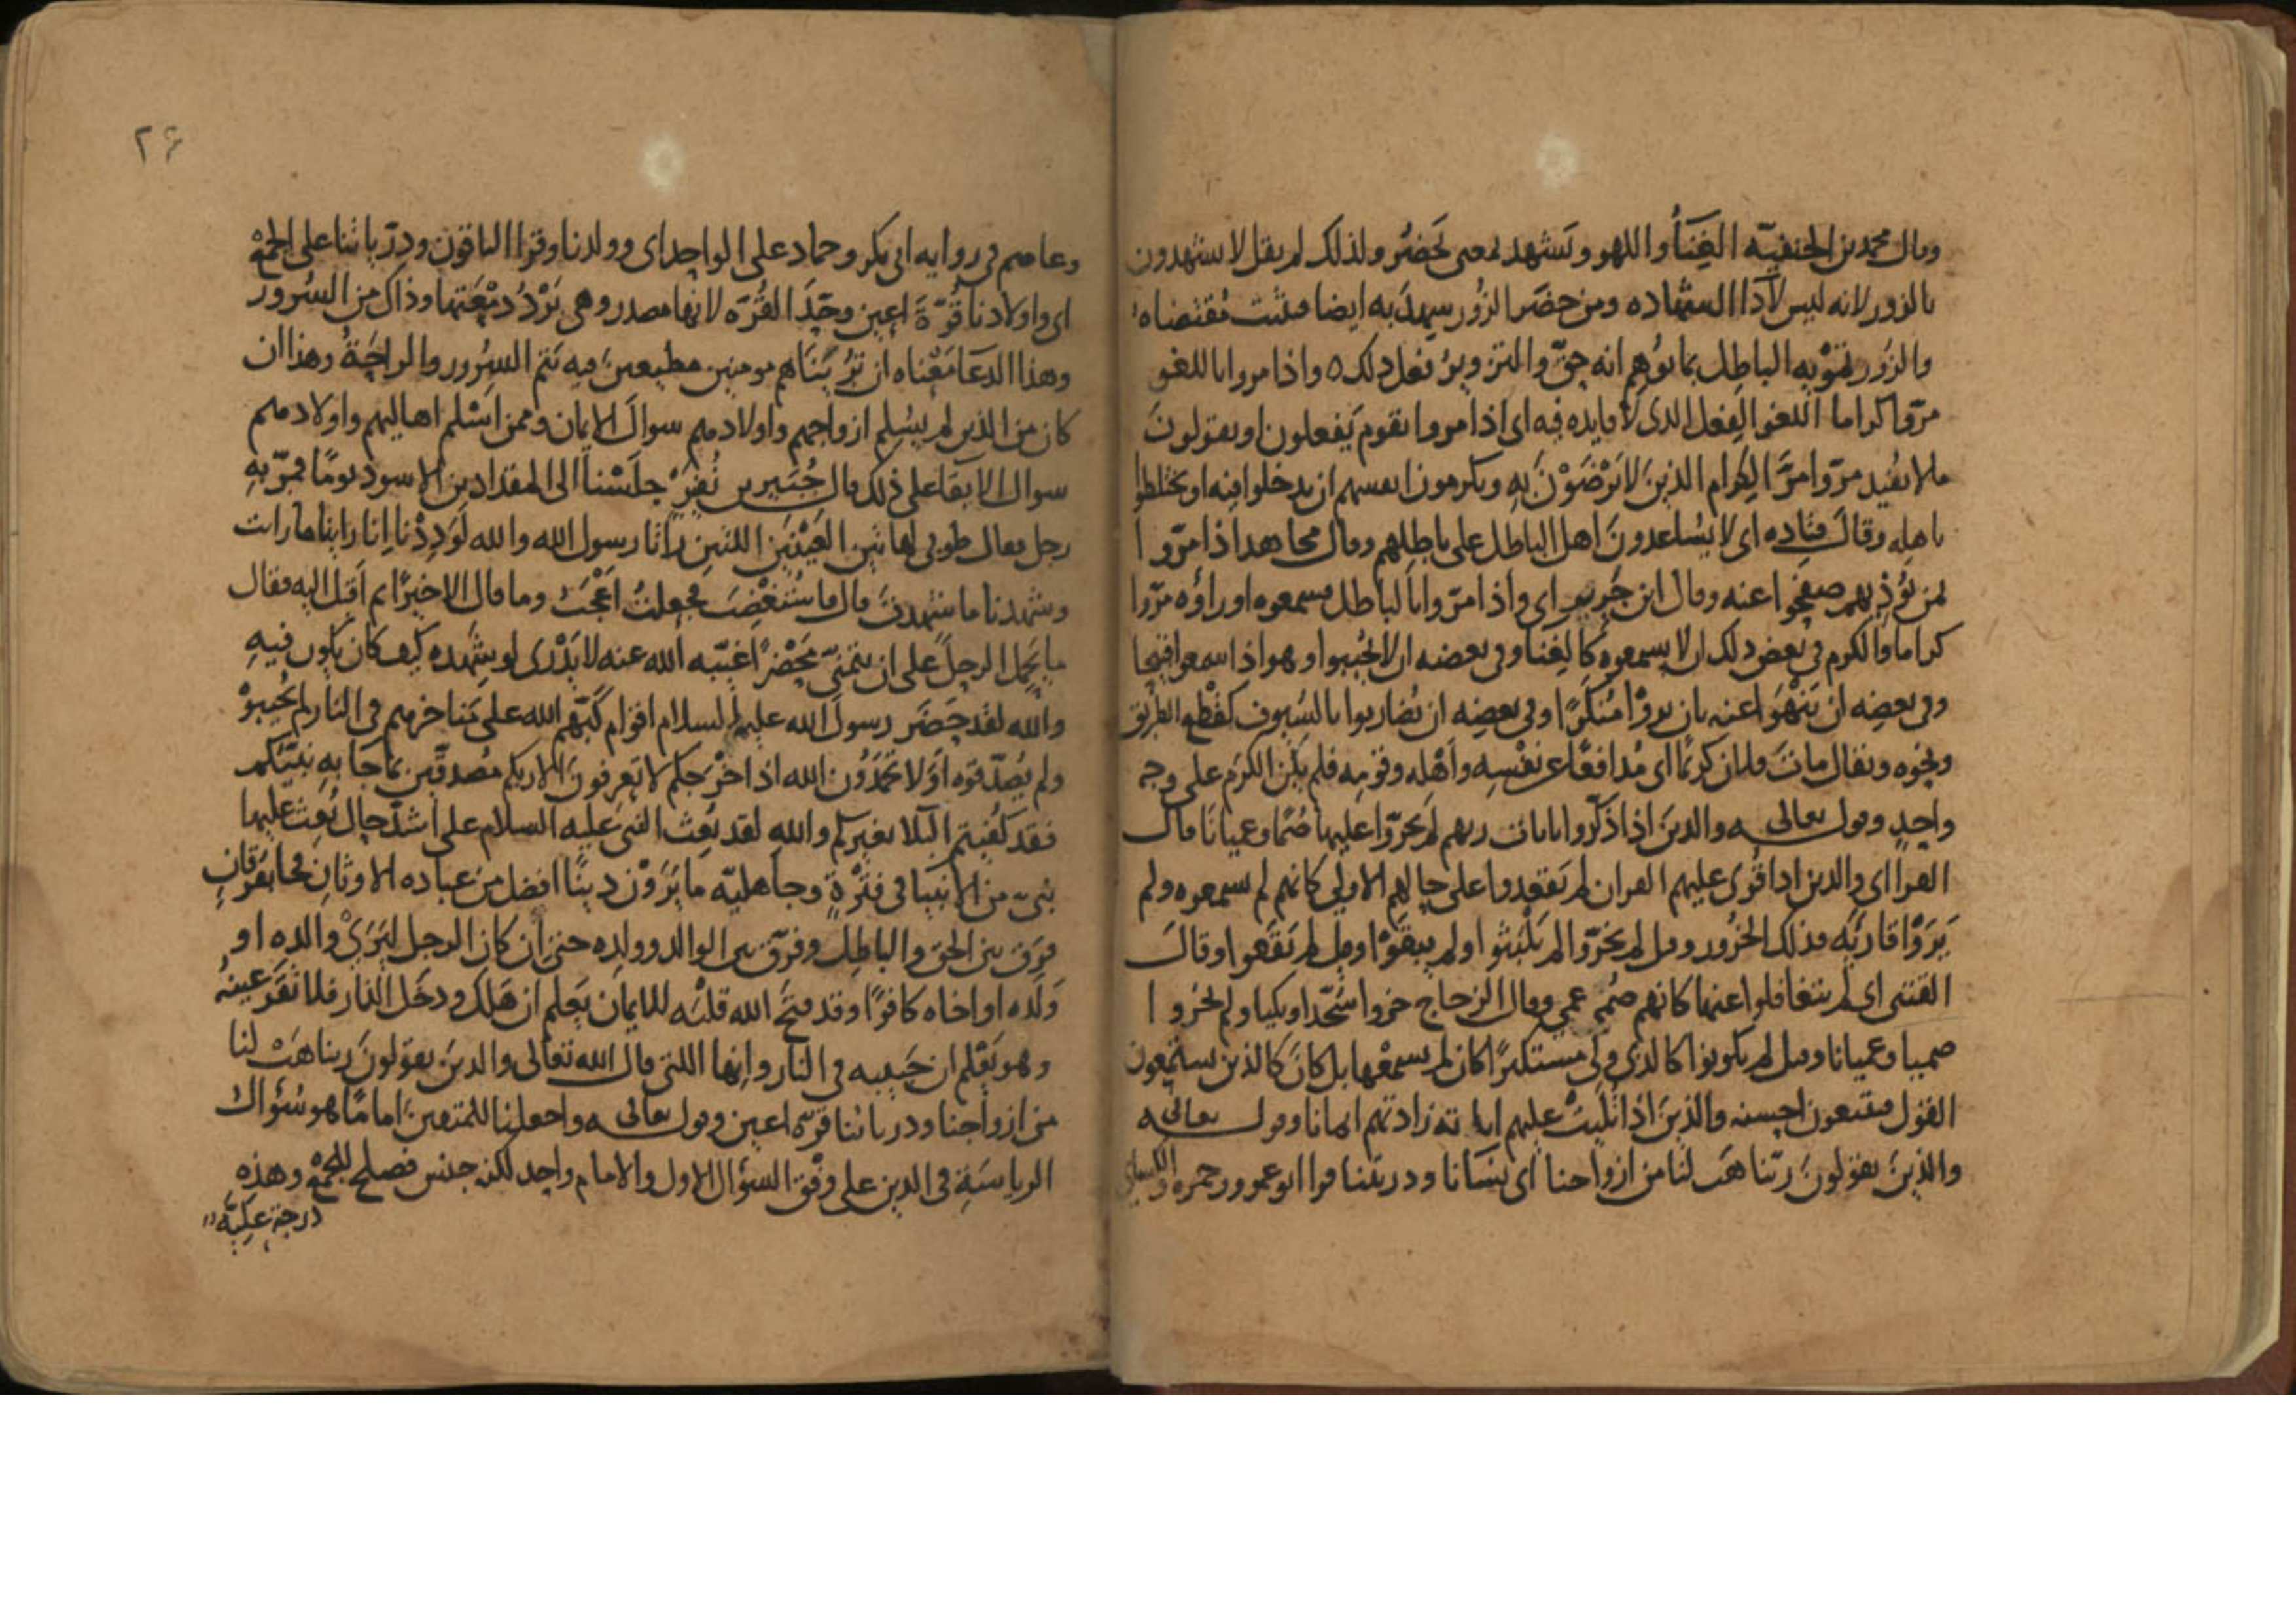 وقال محمد بن الحنفيّه الغِنَأ واللهو وتَشهد بمعنى تَحضُر ولذلك لم يقل لا يشهدون
بالزور لانه ليس لآدا الشهاده ومن حضَر الزُور سهدَ به ايضا فثبت مُقتضاه
والزُور تمْوِيه الباطِل بما يوُهم انه حقّ والتزويرُ فعل ذلك ه واذا مروا باللغو
مرّوا كراما اللغو الفِعل الذى لا فايده فيه اى اذا مروا بقوم يَفعلون او يقولونَ
مالا يُفيد مرّوا مرَّ الِكرام الذينَ لا يَرْضَوْنَ بهِ ويكرمون انفسهم ان يدخلوا فيه او يختلطوا
باهلِه وقالَ قتاده اى لا يُساعدونَ اهل الباطل على باطِلهم وقال مجاهد اذا مرّوا
بمن يُؤذيهم صفَحُوا عنه وقال ابن جَرير اى واذا مرّوا بالباطل فسمعوه او راؤه مرّوا
كراما والكرم فى بعض ذلك ان لا يسمعوه كالِغنا وفى بعضه ان لا يُجيبوا وهو اذا سمعوا قبيحا
وفى بعضِه ان يَنْهَوا عنه بان يروْا مُنكَرًا وفى بعضِه ان يُضاربوا بالسُيوف كقَطْع الطَريق
ونحوِه ويقال ماتَ فلان كريمًا اى مُدافعًا عن نفْسِه واَهْلِه وقومِه فلم يكُن الكرَم على وجهٍ
واحدٍ وقوله تعالى والذينَ اذا ذُكّروا بايات ربهم لم يَخرّوا عليها صُمًّا وعميانًا قال
الفرا اى والذين اذا قُرى عليهم القران لم يَقعدوا على حالِهم الاولى كانهم لم يسمعوه ولم
يَرَوْا قاريَه فذلك الخُرُور وقيل لم يخرّوا لم يَلْبَثوا ولم يبقَوْا وقيل لم يَقَعوا وقالَ
القتبى اى لم يتغافلوا عنها كانهم صُمّ عمى وقال الزجاج خروا سُجّدا وبكيا ولم يخرُوا
صميا وعميانا وقيل لم يكونوا كالذى ولّى مستكبرًا كان لم يسمعْها بل كانَ كالذين يستمعون
القول فيتبعون احسنه والذينَ اذا تُلِيَتْ عليهم اياته زادتهم ايمانا وقوله تعالى
والذينَ يقولونَ ربّنا هَب لنا من ازواجنا اى نِسَآنا وذريتنا قرا ابو عمرو وحمزه والكسائى
وعاصم فى روايه ابى بكر وحماد على الواحد اى وولدنا وقرا الباقون وذرّياتنا على الجمْع
اى واولادنا قُرّةَ اعين وحّدَ القُرّه لانها مصدر وهى بَرْدُ دمْعَتها وذاك من السُرور
وهذا الدعَا مَعْناه ان تُرِيَنَاهم مومنين مطيعين فيه تتم السرُور والراحَةُ وهذا ان
كان من الذين لم يسُلم ازواجهم واولادهم سوالَ الايمان وممن اَسْلم اهاليهم واولادهم
سوال الابقا على ذلك قال جُبَير بن نُفيَرْ جلَسْنا الى المقداد بن الاسود يومًا فمرّ بهِ
رجل فقال طوبى لهاتَين العَيْنَين اللتين راتا رسول الله والله لَوَدِدْنا اِنا راينا ما رايت
وشهدنا ما شهدتَ قال فاسْتغْضِبَ فجعلتُ اعْجَبُ وما قال الا خيرًا ثم اقبَل اليه فقال
ما يَحمِل الرجلَ على ان يتمنَّى مَحْضرًا غيّبه الله عنه لا يَدْرى لو شهِده كيف كان يكون فيهِ
والله لقد حَضَر رسولَ الله عليه السلام اقوام كَبّهم الله على مَناخرهم فى النار لم يُجيبوْ
ولم يُصدّقوه اَوَلا تَحمَدُون الله اذ اخْرَجكم لا تعرفونَ الا ربكم مُصدقين بما جَا بهِ نبيّكم
فقد كُفيتم البَلا بغيركم والله لقد بُعِث النبى عَليه السلام على اشدّ حالٍ بُعِث عليها
نبىّ من الانبيا فى فَتْرةٍ وجاهليّه ما يَرَوْن دينًا افضل من عباده الاوثانِ فجا بفرقانٍ
فرَق بين الحق والباطِل وفرّق بين الوالد وولِده حتى ان كان الرجل ليَرَىْ والده او
وَلَده او اخاه كافرًا وقد فتحَ الله قلبَه للايمان يَعلم ان هَلك دخَل النار فلا تقَر عينهُ
وهو يَعْلم ان حَبيبه فى النار وانها اللتى قال الله تعَالى والذينَ يقولونَ ربنا هَبْ لنا
من ازواجنا وذرياتنا قرّه اعين وقوله تعالى واجعلنا للمتقينَ امامًا هو سُؤال
الرياسَةِ فى الدين على وفْق السؤال الاول والامام واحد لكنه جنس فصلح للجمْع وهذه
درجة عليّة
٢٤